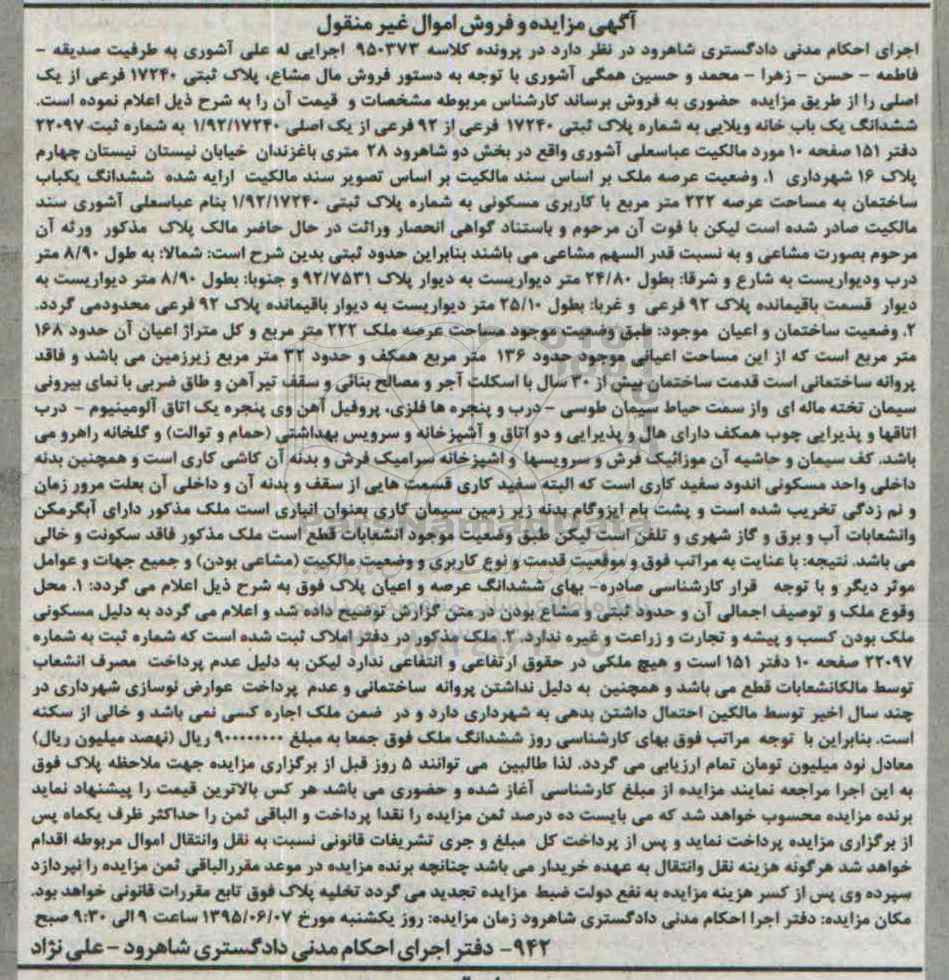 آگهی مزایده و فروش اموال غیر منقول
اجرای احکام مدنی دادگستری شاهرود در نظر دارد در پرونده کلاسه ۹۵۰۳۷۳ اجرایی له علی آشوری به طرفیت صدیقه -
فاطمه - حسن - زهرا - محمد و حسین همگی آشوری با توجه به دستور فروش مال مشاع، پلاک ثبتی ۱۷۲۴۰ فرعی از یک
اصلی را از طریق مزایده حضوری به فروش برساند کارشناس مربوطه مشخصات و قیمت آن را به شرح ذیل اعلام نموده است.
ششدانگ یک باب خانه ویلایی به شماره پلاک ثبتی ۱۷۲۴۰ فرعی از ۹۲ فرعی از یک اصلی ۱/۹۲/۱۷۲۴۰ به شماره ثبت ۲۲۰۹۷
دفتر ۱۵۱ صفحه ۱۰ مورد مالکیت عباسعلی آشوری واقع در بخش دو شاهرود ۲۸ متری باغزندان خیابان نیستان نیستان چهارم
پلاک ۱۶ شهرداری ۱. وضعیت عرصه ملک بر اساس سند مالکیت بر اساس تصویر سند مالکیت ارایه شده ششدانگ یکباب
ساختمان به مساحت عرصه ۲۲۲ متر مربع با کاربری مسکونی به شماره پلاک ثبتی ۱/۹۲/۱۷۲۴۰ بنام عباسعلی آشوری سند
مالکیت صادر شده است لیکن با فوت آن مرحوم و باستناد گواهی انحصار وراثت در حال حاضر مالک پلاک مذکور ورثه آن
مرحوم بصورت مشاعی و به نسبت قدر السهم مشاعی می باشند بنابراین حدود ثبتی بدین شرح است: شمالا: به طول ۸/۹۰ متر
درب ودیواریست به شارع و شرقا: بطول ۲۴/۸۰ متر دیواریست به دیوار پلاک ۹۲/۷۵۳۱ و جنوبا: بطول ۸/۹۰ متر دیواریست به
دیوار قسمت باقیمانده پلاک ۹۲ فرعی و غربا: بطول ۲۵/۱۰ متر دیواریست به دیوار باقیمانده پلاک ۹۲ فرعی محدودمی گردد.
۲. وضعیت ساختمان و اعیان موجود: طبق وضعیت موجود مساحت عرصه ملک ۲۲۲ متر مربع و کل متراژ اعیان آن حدود ۱۶۸
متر مربع است که از این مساحت اعیانی موجود حدود ۱۳۶ متر مربع همکف و حدود ۳۲ متر مربع زیرزمین می باشد و فاقد
پروانه ساختمانی است قدمت ساختمان بیش از ۳۰ سال با اسکلت آجر و مصالح بنائی و سقف تیرآهن و طاق ضربی با نمای بیرونی
سیمان تخته ماله ای واز سمت حیاط سیمان طوسی - درب و پنجره ها فلزی، پروفیل آهن وی پنجره یک اتاق آلومینیوم - درب
اتاقها و پذیرایی چوب همکف دارای هال و پذیرایی و دو اتاق و آشپزخانه و سرویس بهداشتی (حمام و توالت) و گلخانه راهرو می
باشد. کف سیمان و حاشیه آن موزائیک فرش و سرویسها و اشپزخانه سرامیک فرش و بدنه آن کاشی کاری است و همچنین بدنه
داخلی واحد مسکونی اندود سفید کاری است که البته سفید کاری قسمت هایی از سقف و بدنه آن و داخلی آن بعلت مرور زمان
و نم زدگی تخریب شده است و پشت بام ایزوگام بدنه زیر زمین سیمان کاری بعنوان انباری است ملک مذکور دارای آبگرمکن
وانشعابات آب و برق و گاز شهری و تلفن است لیکن طبق وضعیت موجود انشعابات قطع است ملک مذکور فاقد سکونت و خالی
می باشد. نتیجه: با عنایت به مراتب فوق و موقعیت قدمت و نوع کاربری و وضعیت مالکیت (مشاعی بودن) و جمیع جهات و عوامل
موثر دیگر و با توجه قرار کارشناسی صادره- بهای ششدانگ عرصه و اعیان پلاک فوق به شرح ذیل اعلام می گردد: ۱. محل
وقوع ملک و توصیف اجمالی آن و حدود ثبتی و مشاع بودن در متن گزارش توضیح داده شد و اعلام می گردد به دلیل مسکونی
ملک بودن کسب و پیشه و تجارت و زراعت و غیره ندارد. ۲. ملک مذکور در دفتر املاک ثبت شده است که شماره ثبت به شماره
۲۲۰۹۷ صفحه ۱۰ دفتر ۱۵۱ است و هیچ ملکی در حقوق ارتفاعی و انتفاعی ندارد لیکن به دلیل عدم پرداخت مصرف انشعاب
توسط مالکانشعابات قطع می باشد و همچنین به دلیل نداشتن پروانه ساختمانی و عدم پرداخت عوارض نوسازی شهرداری در
چند سال اخیر توسط مالکین احتمال داشتن بدهی به شهرداری دارد و در ضمن ملک اجاره کسی نمی باشد و خالی از سکنه
است. بنابراین با توجه مراتب فوق بهای کارشناسی روز ششدانگ ملک فوق جمعا به مبلغ ۹۰۰۰۰۰۰۰۰ ریال (نهصد میلیون ریال)
معادل نود میلیون تومان تمام ارزیابی می گردد. لذا طالبین می توانند ۵ روز قبل از برگزاری مزایده جهت ملاحظه پلاک فوق
به این اجرا مراجعه نمایند مزایده از مبلغ کارشناسی آغاز شده و حضوری می باشد هر کس بالاترین قیمت را پیشنهاد نماید
برنده مزایده محسوب خواهد شد که می بایست ده درصد ثمن مزایده را نقدا پرداخت و الباقی ثمن را حداکثر ظرف یکماه پس
از برگزاری مزایده پرداخت نماید و پس از پرداخت کل مبلغ و جری تشریفات قانونی نسبت به نقل وانتقال اموال مربوطه اقدام
خواهد شد هرگونه هزینه نقل وانتقال به عهده خریدار می باشد چنانچه برنده مزایده در موعد مقررالباقی ثمن مزایده را نپردازد
سپرده وی پس از کسر هزینه مزایده به نفع دولت ضبط مزایده تجدید می گردد تخلیه پلاک فوق تابع مقررات قانونی خواهد بود.
مکان مزایده: دفتر اجرا احکام مدنی دادگستری شاهرود زمان مزایده: روز یکشنبه مورخ ۱۳۹۵/۰۶/۰۷ ساعت ۹ الی ۹:۳۰ صبح
۹۴۲- دفتر اجرای احکام مدنی دادگستری شاهرود - علی نژاد